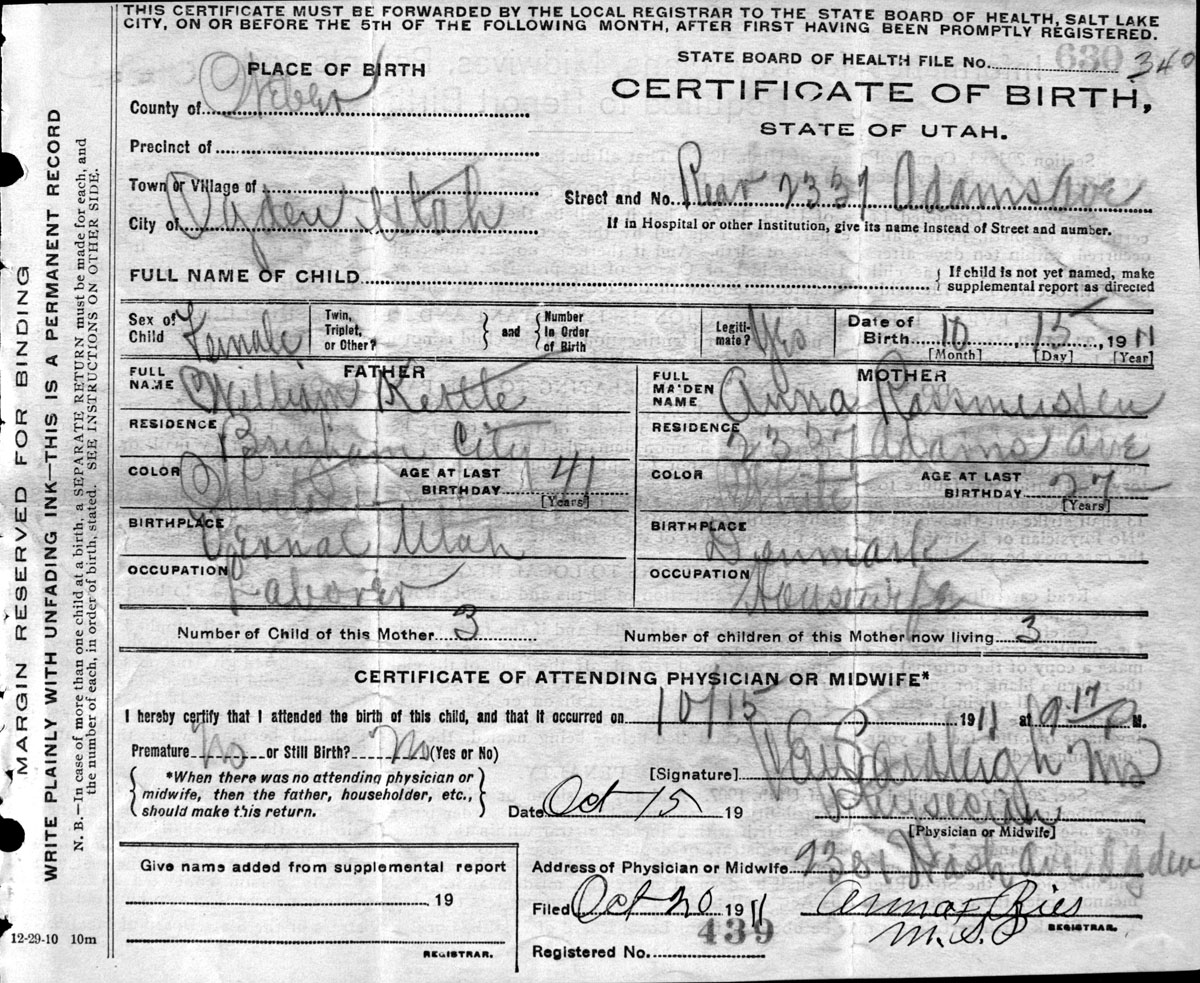 THIS CERTIFICATE MUST BE FORWARDED BY THE LOCAL REGISTRAR TO THE STATE BOARD OF HEALTH, SALT LAKE
CITY, ON OR BEFORE THE 5TH OF THE FOLLOWING MONTH, AFTER FIRST HAVING BEEN PROMPTLY REGISTERED.
STATE BOARD OF HEALTH FILE No. 630 340
PLACE OF BIRTH
CERTIFICATE OF BIRTH,
STATE OF UTAH.
County of Weber
Precinct of
Town or Village of
Street and No. Rear 2337 Adams Ave
City of Ogden Utah
If in Hospital or other Institution, give its name instead of Street and number.
FULL NAME OF CHILD
If child is not yet named, make
supplemental report as directed
Sex of Child Female
Twin, Triplet, or Other? and Number In Order of Birth
Legitimate? Yes
Date of Birth 10 15 1911
[Month] [Day] [Year]
FATHER
MOTHER
FULL NAME William Kettle
FULL MAIDEN NAME Anna Rasmussen
RESIDENCE Brigham City
RESIDENCE 2337 Adams Ave
COLOR White AGE AT LAST BIRTHDAY 41 [Years]
COLOR White AGE AT LAST BIRTHDAY 27 [Years]
BIRTHPLACE Vernal Utah
BIRTHPLACE Denmark
OCCUPATION Laborer
OCCUPATION Housewife
Number of Child of this Mother 3
Number of children of this Mother now living 3
CERTIFICATE OF ATTENDING PHYSICIAN OR MIDWIFE*
I hereby certify that I attended the birth of this child, and that it occurred on 10/15 1911 at M.
Premature No or Still Birth? No (Yes or No)
*When there was no attending physician or
midwife, then the father, householder, etc.,
should make this return.
[Signature]
Date Oct 15 19
[Physician or Midwife]
Give name added from supplemental report
19
REGISTRAR.
Address of Physician or Midwife Wash Ave Ogden
Filed Oct 20 1911
REGISTRAR.
439
Registered No.
12-29-10 10m
MARGIN RESERVED FOR BINDING
WRITE PLAINLY WITH UNFADING INK—THIS IS A PERMANENT RECORD
N. B.—In case of more than one child at a birth, a SEPARATE RETURN must be made for each, and
the number of each, in order of birth, stated. SEE INSTRUCTIONS ON OTHER SIDE.